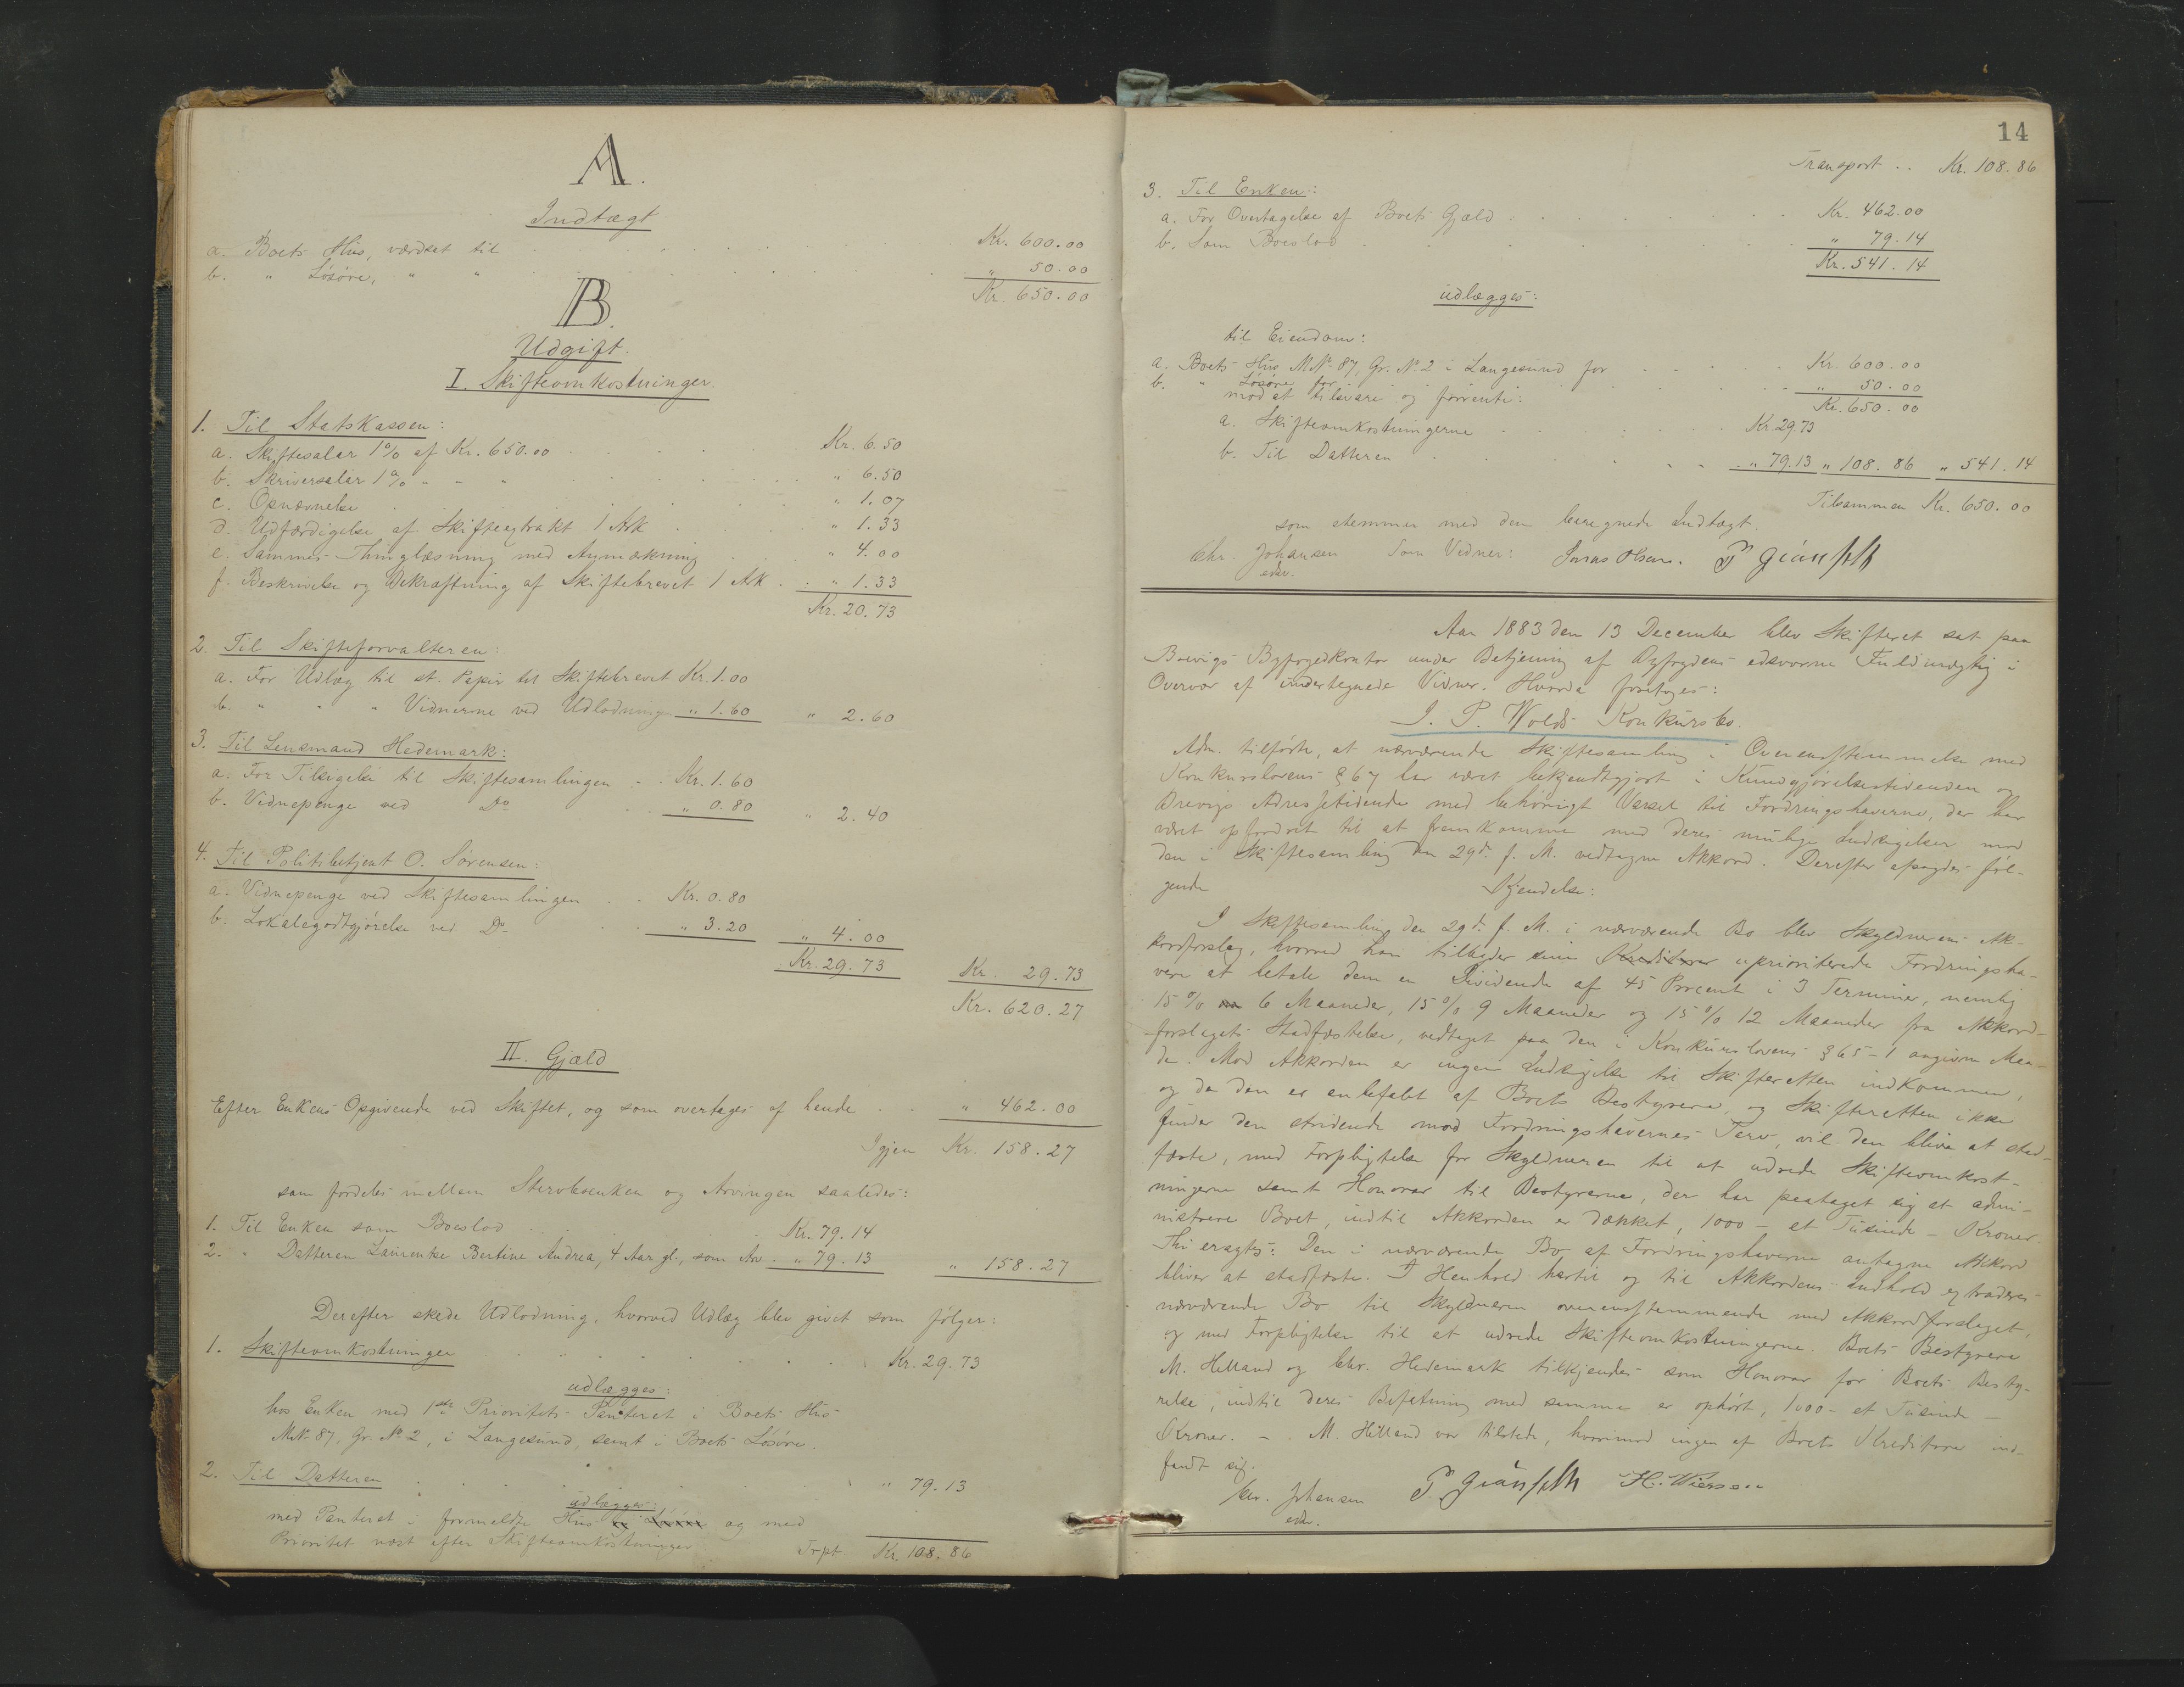 A.
Indtægt
a. Boets Hus, værdsat til Kr. 600.00
b. " Løsøre, " " " 50.00
Kr. 650.00
B.
Udgift.
I. Skifteomkostninger.
1. Til Statskassen:
a. Skiftesalær 1% af Kr. 650.00 Kr. 6.50
b. Skriversalær 1% " " " " 6.50
c. Opnævnelse " 1.07
d. Udfærdigelse af Skifteextrakt 1 Ark " 1.33
e. Sammes Thinglæsning med Anmærkning " 4.00
f. Beskrivelse og Bekræftning af Skiftebrevet 1 Ark " 1.33
Kr. 20.73
2. Til Skifteforvalteren:
a. For Udlæg til st. Papir til Skiftebrevet Kr. 1.00
b. " " " Vidnerne ved Udlodningen " 1.60 " 2.60
3. Til Lensmand Hedemark:
a. For Tilsigelse til Skiftesamlingen Kr. 1.60
b. Vidnepenge ved Do " 0.80 " 2.40
4. Til Politibetjent O. Sørensen:
a. Vidnepenge ved Skiftesamlingen Kr. 0.80
b. Lokalegodtgjørelse ved Do " 3.20 " 4.00
Kr. 29.73 Kr. 29.73
Kr. 620.27
II. Gjæld
Efter Enkens Opgivende ved Skiftet, og som overtages af hende " 462.00
Igjen Kr. 158.27
som fordeles mellem Stervboenken og Arvingen saaledes:
1. Til Enken som Boeslod Kr. 79.14
2. " Datteren Laurenke Bertine Andrea, 4 Aar gl., som Arv " 79.13 " 158.27
Derefter skede Udlodning, hvorved Udlæg blev givet som følger:
1. Skifteomkostninger Kr. 29.73
udlægges:
hos Enken med 1ste Prioritets Panteret i Boets Hus
M.No 87, Gr. No 2, i Langesund, samt i Boets Løsøre.
2. Til Datteren " 79.13
udlægges:
med Panteret i formeldte Hus og med
Prioritet næst efter Skifteomkostninger
Trpt Kr. 108.86
14
Transport .. Kr. 108.86
3. Til Enken:
a. For Overtagelse af Boets Gjæld Kr. 462.00
b. Som Boeslod " 79.14
Kr. 541.14
udlægges:
til Eiendom:
a. Boets Hus M.No 87, Gr. No 2 i Langesund for Kr. 600.00
b. " Løsøre for " 50.00
mod at tilsvare og forrente: Kr. 650.00
a. Skifteomkostningerne Kr. 29.73
b. Til Datteren " 79.13 " 108.86 " 541.14
Tilsammen Kr. 650.00
som stemmer med den beregnede Indtægt.
Chr. Johansen Som Vidner: Jonas Olsen. P Giäusseth
edsv.
Aar 1883 den 13 December blev Skifteret sat paa
Brevigs Byfogedkontor under Betjening af Byfogdens edsvorne Fuldmægtig i
Overvær af undertegnede Vidner. Hvorda foretoges:
J. P. Wolds Konkursbo.
Adm. tilførte, at nærværende Skiftesamling i Overensstemmelse med
Konkurslovens § 67 har været bekjendtgjort i Kundgjørelsestidenden og
Brevigs Adressetidende med behørigt Varsel til Fordringshaverne, der har
været opfordret til at fremkomme med deres mulige Indsigelser mod
den i Skiftesamling den 29de f. M. vedtagne Akkord. Derefter afsagdes føl-
gende Kjendelse:
I Skiftesamling den 29de f. M. i nærværende Bo blev Skyldnerens Ak-
kordforslag, hvorved han tilbyder sine Kreditorer uprioriterede Fordringsha-
vere at betale dem en Dividende af 45 Procent i 3 Terminer, nemlig
15% 6 Maaneder, 15% 9 Maaneder og 15% 12 Maaneder fra Akkord-
forslagets Stadfæstelse, vedtaget paa den i Konkurslovens § 65-1 angivne Maa-
de. Mod Akkorden er ingen Indsigelse til Skifteretten indkommen,
og da den er anbefalet af Boets Bestyrere, og Skifteretten ikke
finder den stridende mod Fordringshavernes Tarv, vil den blive at stad-
fæste, med Forpligtelse for Skyldneren til at udrede Skifteomkost-
ningerne samt Honorar til Bestyrerne, der har paataget sig at admi-
nistrere Boet, indtil Akkorden er dækket, 1000 - et Tusinde - Kroner.
Thi eragtes: Den i nærværende Bo af Fordringshaverne antagne Akkord
bliver at stadfæste. I Henhold hertil og til Akkordens Indhold extraderes
nærværende Bo til Skyldneren overensstemmende med Akkordforslaget,
og med Forpligtelse til at udrede Skifteomkostningerne. Boets Bestyrere
M. Helland og Chr. Hedemark tilkjendes som Honorar for Boets Besty-
relse, indtil deres Befatning med samme er ophørt, 1000 - et Tusinde -
Kroner. - M. Helland var tilstede, hvorimod ingen af Boets Kreditorer ind-
fandt sig.
Chr. Johansen P Giäusseth H. Wiersen
edsv.